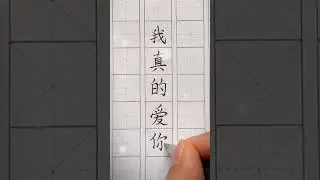 我真的爱你